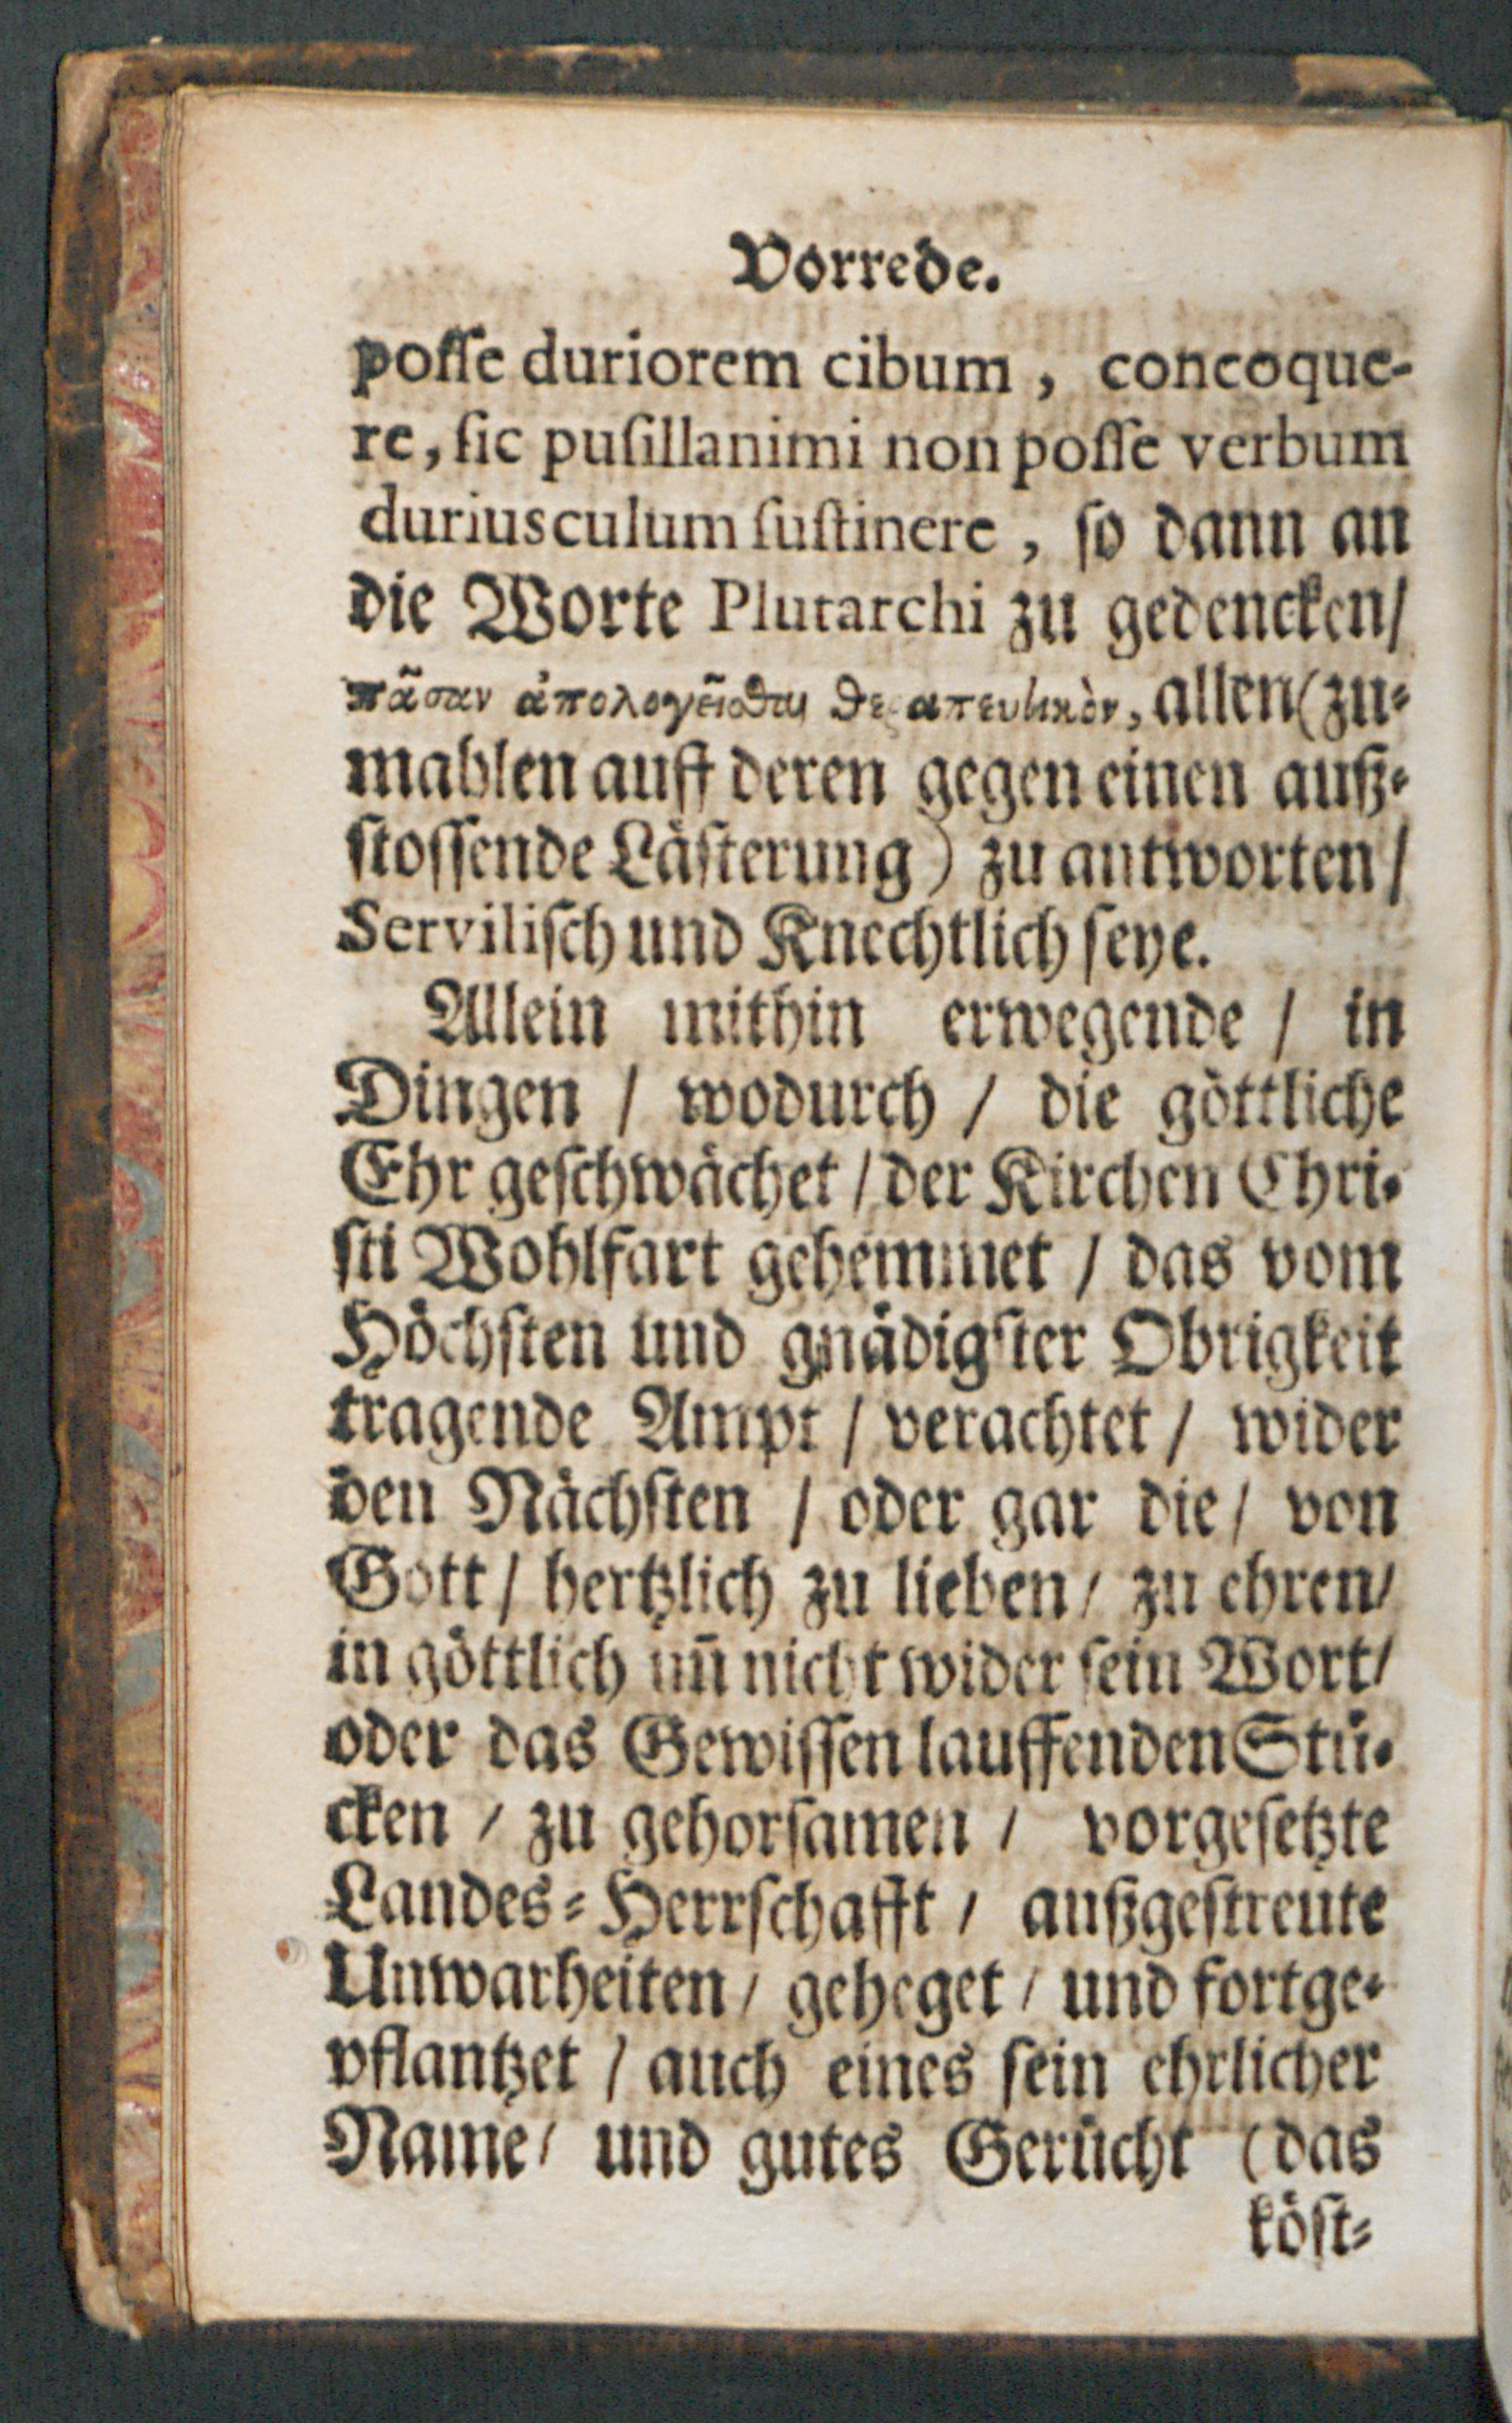 Vorrede.
poſſe duriorem cibum, concoque-
re, ſic puſillanimi non poſſe verbum
duriusculum ſuſtinere, ſo dann an
die Worte Plutarchi zu gedencken/
πᾶσαν ἀπολογεῖσθαι, allen (zu-
mahlen auff deren gegen einen auß-
ſtoſſende Läſterung) zu antworten/
Serviliſch und Knechtlich ſeye.
Allein mithin erwegende / in
Dingen / wodurch / die göttliche
Ehr geſchwächet / der Kirchen Chri-
ſti Wohlfart gehemmet / das vom
Höchſten und gnädigſter Obrigkeit
tragende Ampt / verachtet / wider
den Nächſten / oder gar die / von
Gott / hertzlich zu lieben / zu ehren/
in göttlich uñ nicht wider ſein Wort/
oder das Gewiſſen lauffenden Stü-
cken / zu gehorſamen / vorgeſetzte
Landes-Herrſchafft / außgeſtreute
Unwarheiten / geheget / und fortge-
pflantzet / auch eines ſein ehrlicher
Name / und gutes Gerücht (das
köſt-